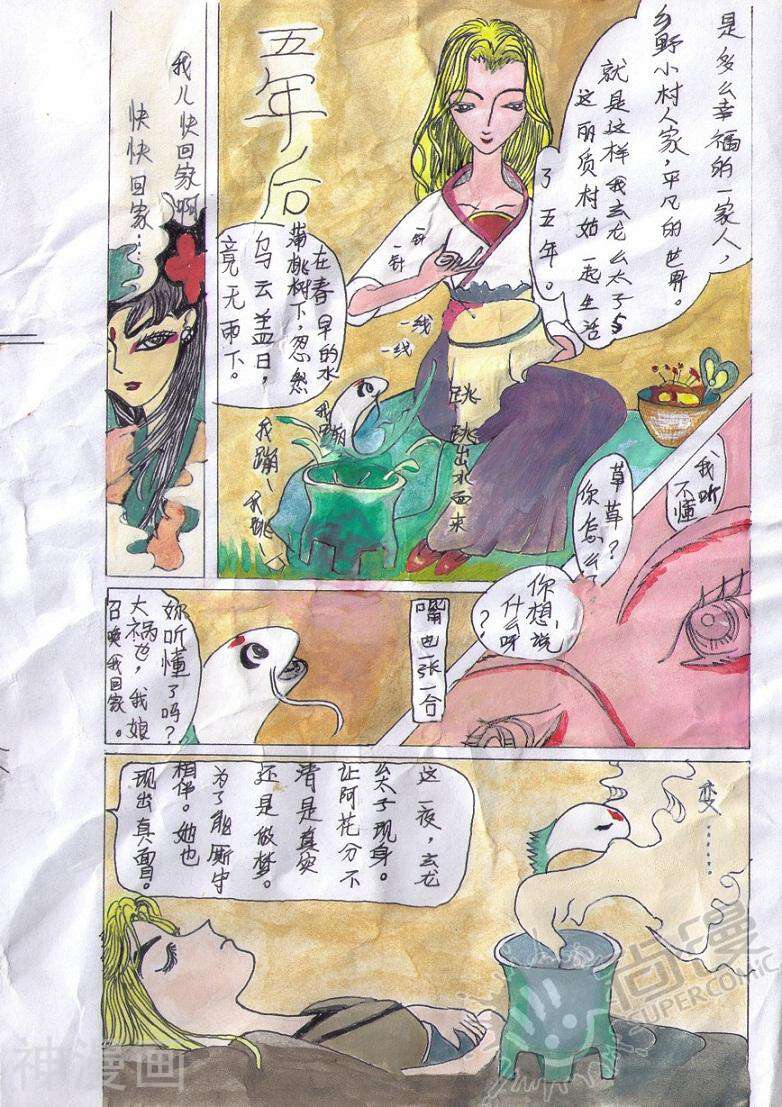 五年后
是多么幸福的一家人，
乡野小村人家，平凡的世界。
就是这样我玄龙么太子与
这丽质村姑一起生活
了五年。
在春旱的水
蒲桃树下，忽然
乌云盖日，
竟无雨下。
一针
一针
一线
一线
我儿快回家啊
快快回家……
我蹦
我蹦、
我跳、
跳
跳出水面来
我听
不懂
草草？
你怎么了
你想说
什么呀
？
嘴巴一张一合
妳听懂了吗？
大祸也，我娘
召唤我回家。
这一夜，玄龙
么太子现身。
让阿花分不
清是真实
还是做梦。
为了能厮守
相伴。她也
现出真面目。
变……
神漫画
尚漫
SUPERCOMIC